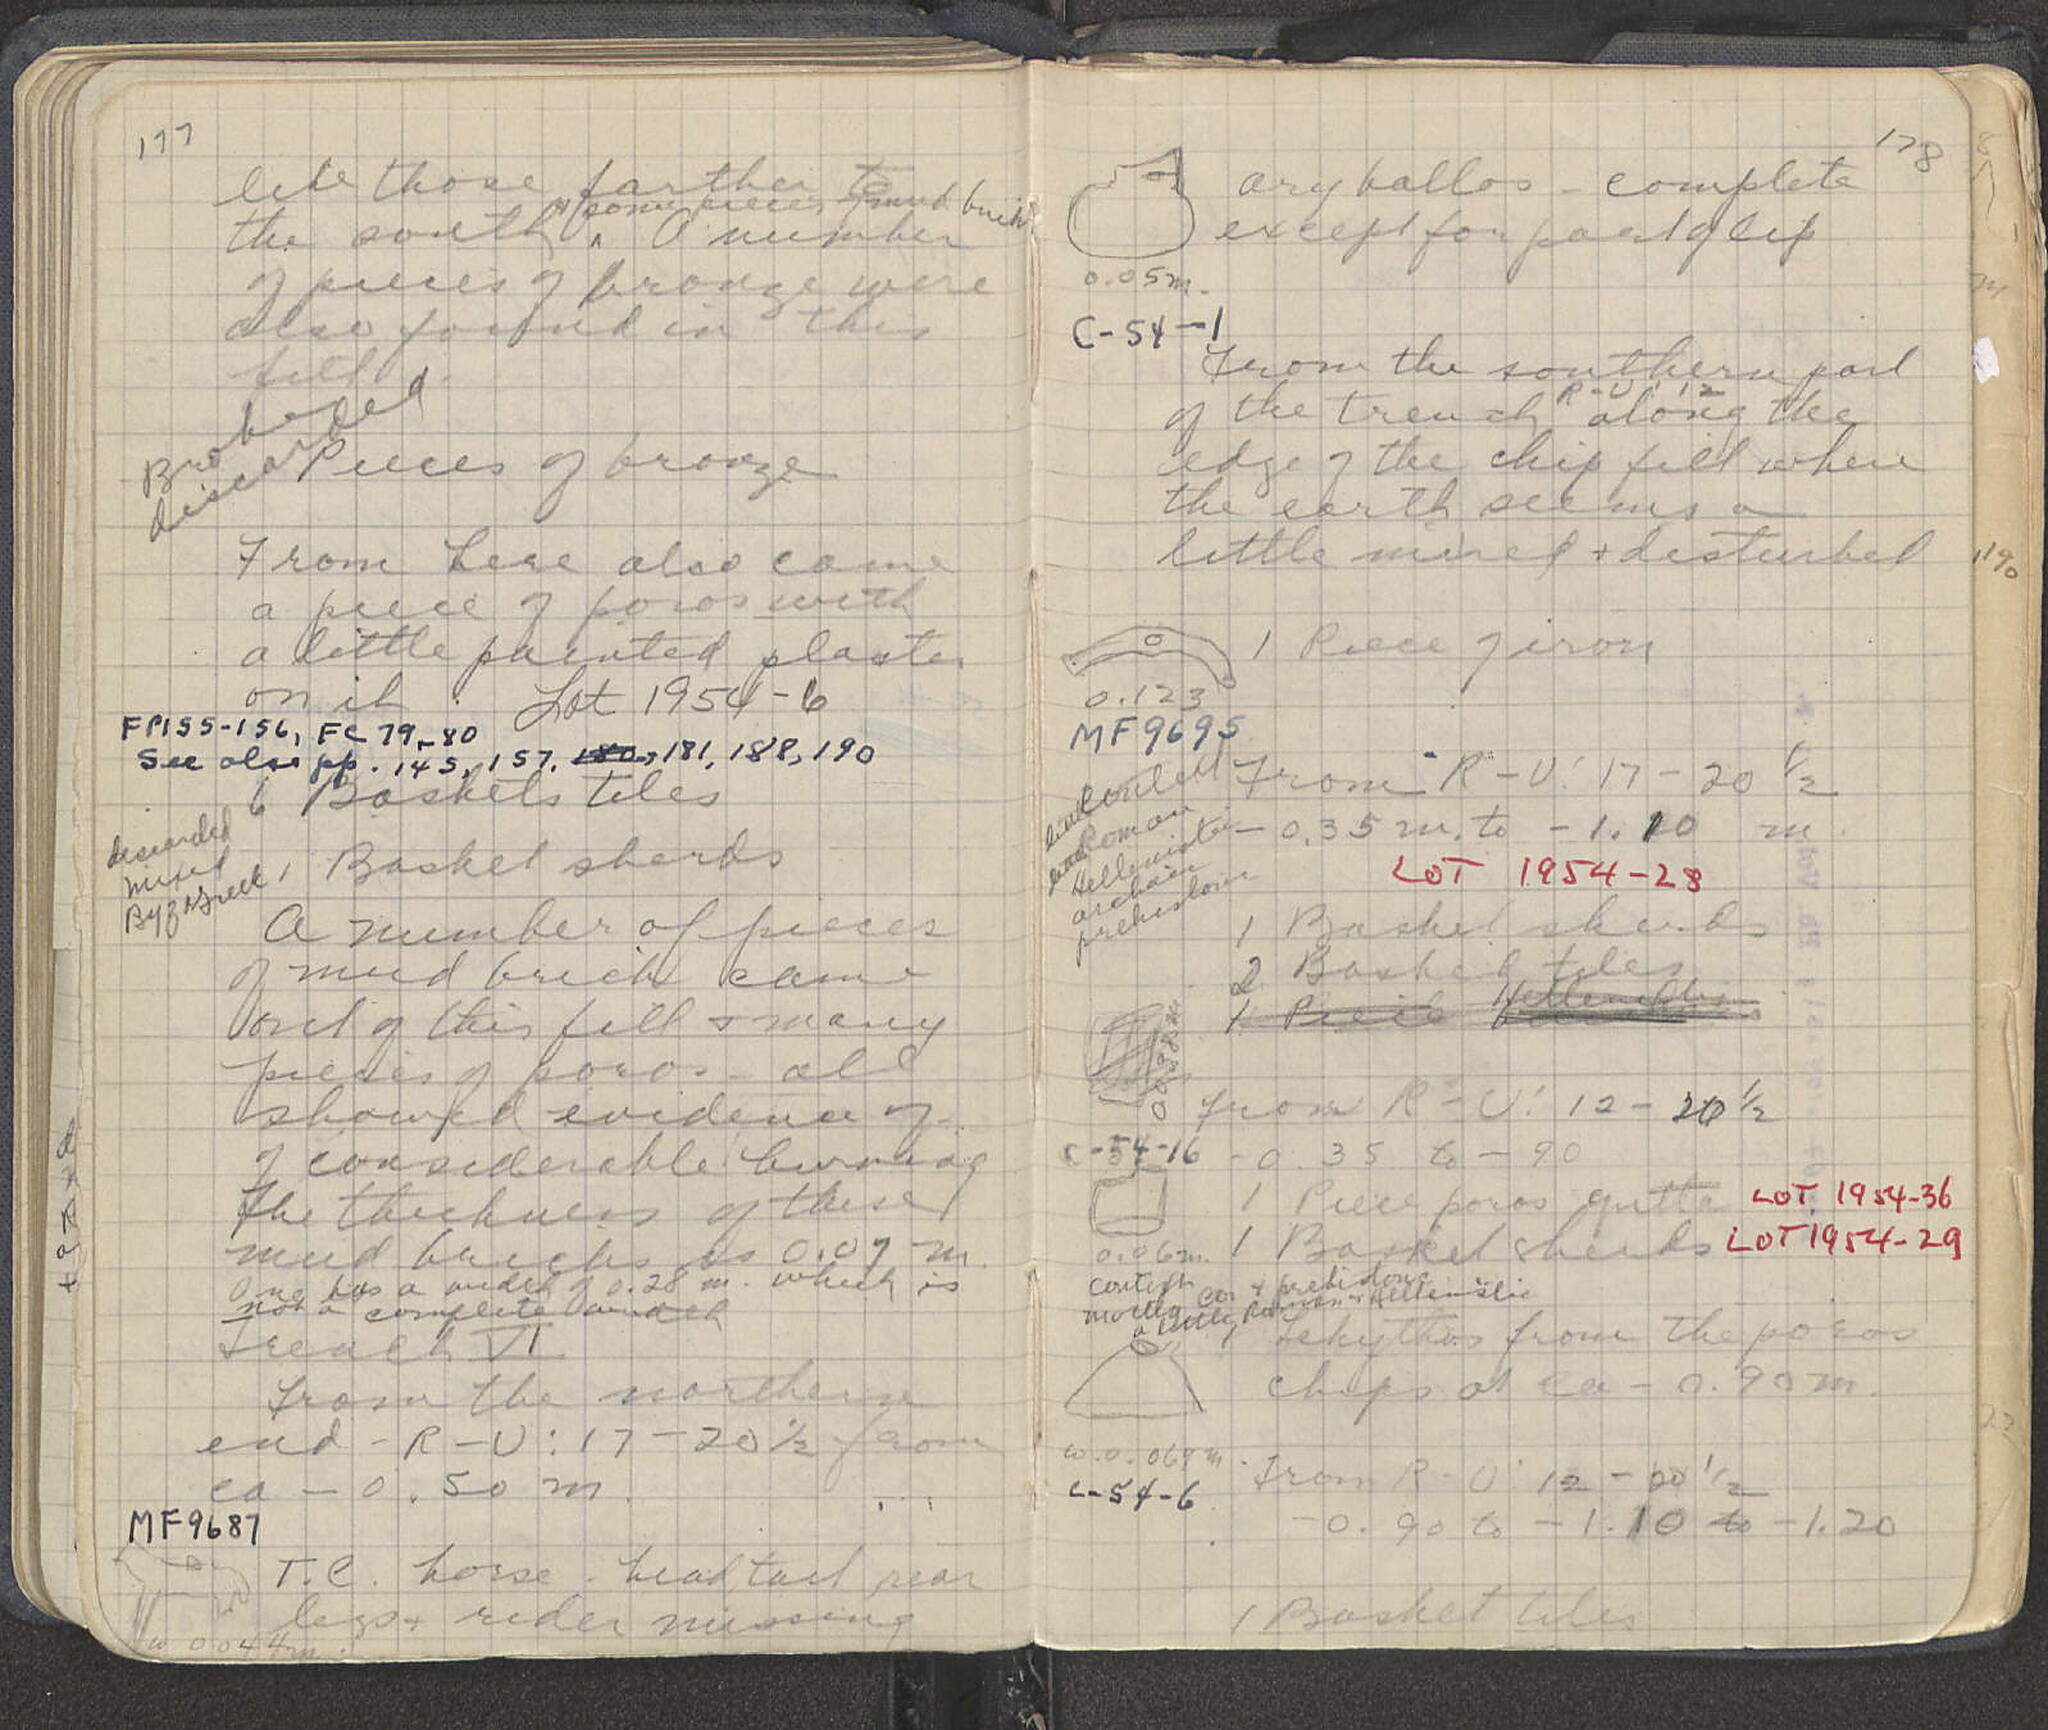 177
like those farther to
the south ^ & some pieces of mud brick. A number
of pieces of bronze were
also found in this
fill.
discarded
Pieces of bronze
From here also came
a piece of poros with
a little painted plaster
on it. Lot 1954-6
FP155-156, FC 79-80
See also pp. 145, 157, 180, 181, 188, 190
6 Baskets tiles
discarded
mixed
Byz + Greek
1 Basket sherds
A number of pieces
of mud brick came
out of this fill + many
pieces of poros - all
showed evidence of
of considerable burning
The thickness of these
mud bricks is 0.07 m.
One has a width of 0.28 m. which is
not a complete width
Trench VI
From the northern
end - R-U: 17-20 1/2 from
ca - 0.50 m.
MF9687
T.C. horse - head, tail, rear
legs + rider missing
w 0.044m.
178
aryballos - complete
except for part of lip
0.05m.
C-54-1
From the southern part
of the trench R-U: 12 along the
edge of the chip fill where
the earth seems a
little mixed + disturbed
1 Piece of iron
0.123
MF9695
From R-U: 17-20 1/2
-0.35 m. to -1.10 m.
LOT 1954-28
little Roman
Hellenistic
archaic
prehistoric
1 Basket sherds
2 Baskets tiles
1 Piece Hellenistic
From R-U: 12-20 1/2
-0.35 to -90
C-54-16
1 Piece poros gutta LOT 1954-36
1 Basket sherds LOT 1954-29
0.06m.
mostly Cor + prehistoric
a little Roman + Hellenistic
1 Lekythos from the poros
chips at ca -0.90m.
w. 0.069m.
C-54-6
From R-U: 12-20 1/2
-0.90 to -1.10 to -1.20
1 Basket tiles